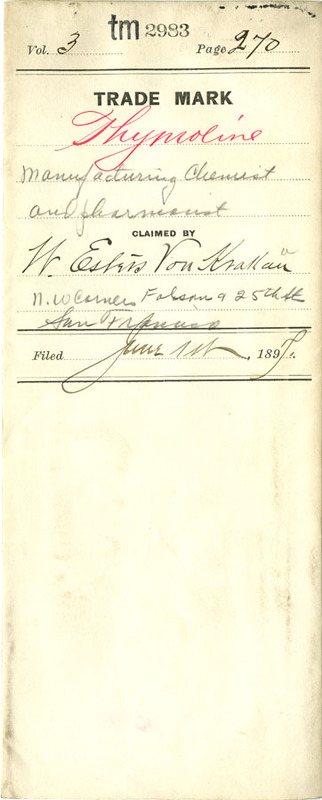 tm 2983
Vol. 3 Page 270
TRADE MARK
Thymoline
Manufacturing Chemist
and pharmacist
CLAIMED BY
W. Esters Von Krakau
N.W Corner Folsom & 25th St
San Francisco
Filed June 1st, 1897.